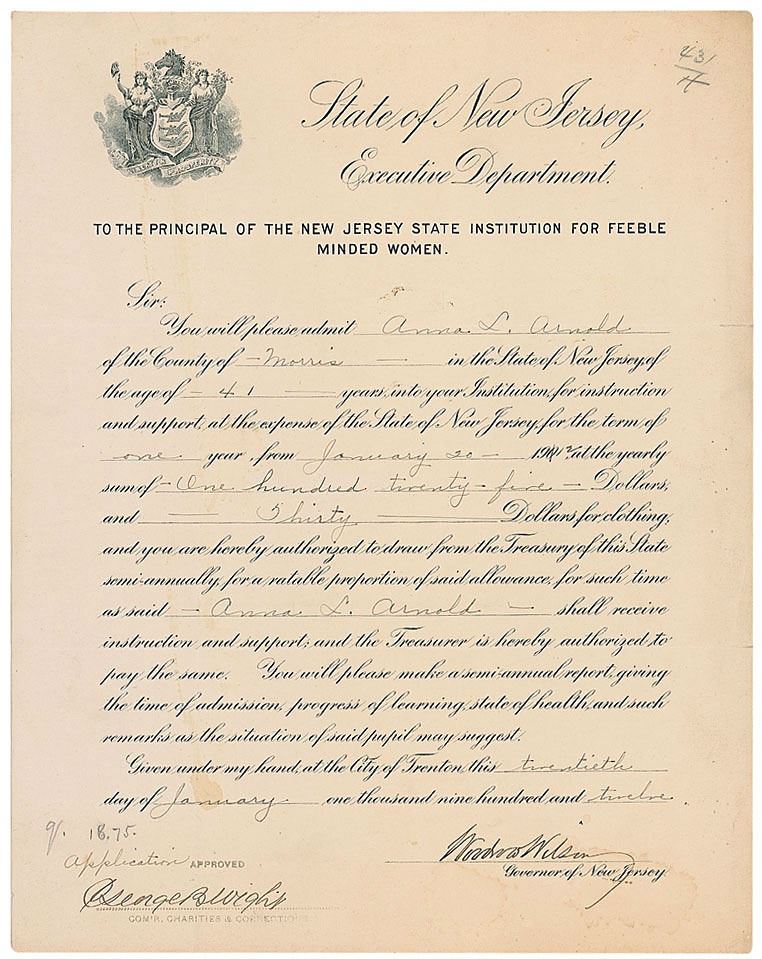 431
4
State of New Jersey,
Executive Department.
LIBERTY & PROSPERITY
TO THE PRINCIPAL OF THE NEW JERSEY STATE INSTITUTION FOR FEEBLE
MINDED WOMEN.
Sir:
You will please admit Anna L. Arnold
of the County of – Morris – in the State of New Jersey, of
the age of – 41 – years, into your Institution, for instruction
and support, at the expense of the State of New Jersey, for the term of
one year, from January 20 – 1912, at the yearly
sum of – One hundred twenty-five – Dollars,
and – Thirty – Dollars for clothing;
and you are hereby authorized to draw from the Treasury of this State
semi-annually, for a ratable proportion of said allowance, for such time
as said – Anna L. Arnold – shall receive
instruction and support; and the Treasurer is hereby authorized to
pay the same. You will please make a semi-annual report, giving
the time of admission, progress of learning, state of health, and such
remarks as the situation of said pupil may suggest.
Given under my hand, at the City of Trenton, this twentieth
day of January one thousand nine hundred and twelve.
18.75.
Woodrow Wilson
Governor of New Jersey.
Application APPROVED
George B. Wight
COM'R. CHARITIES & CORRECTIONS